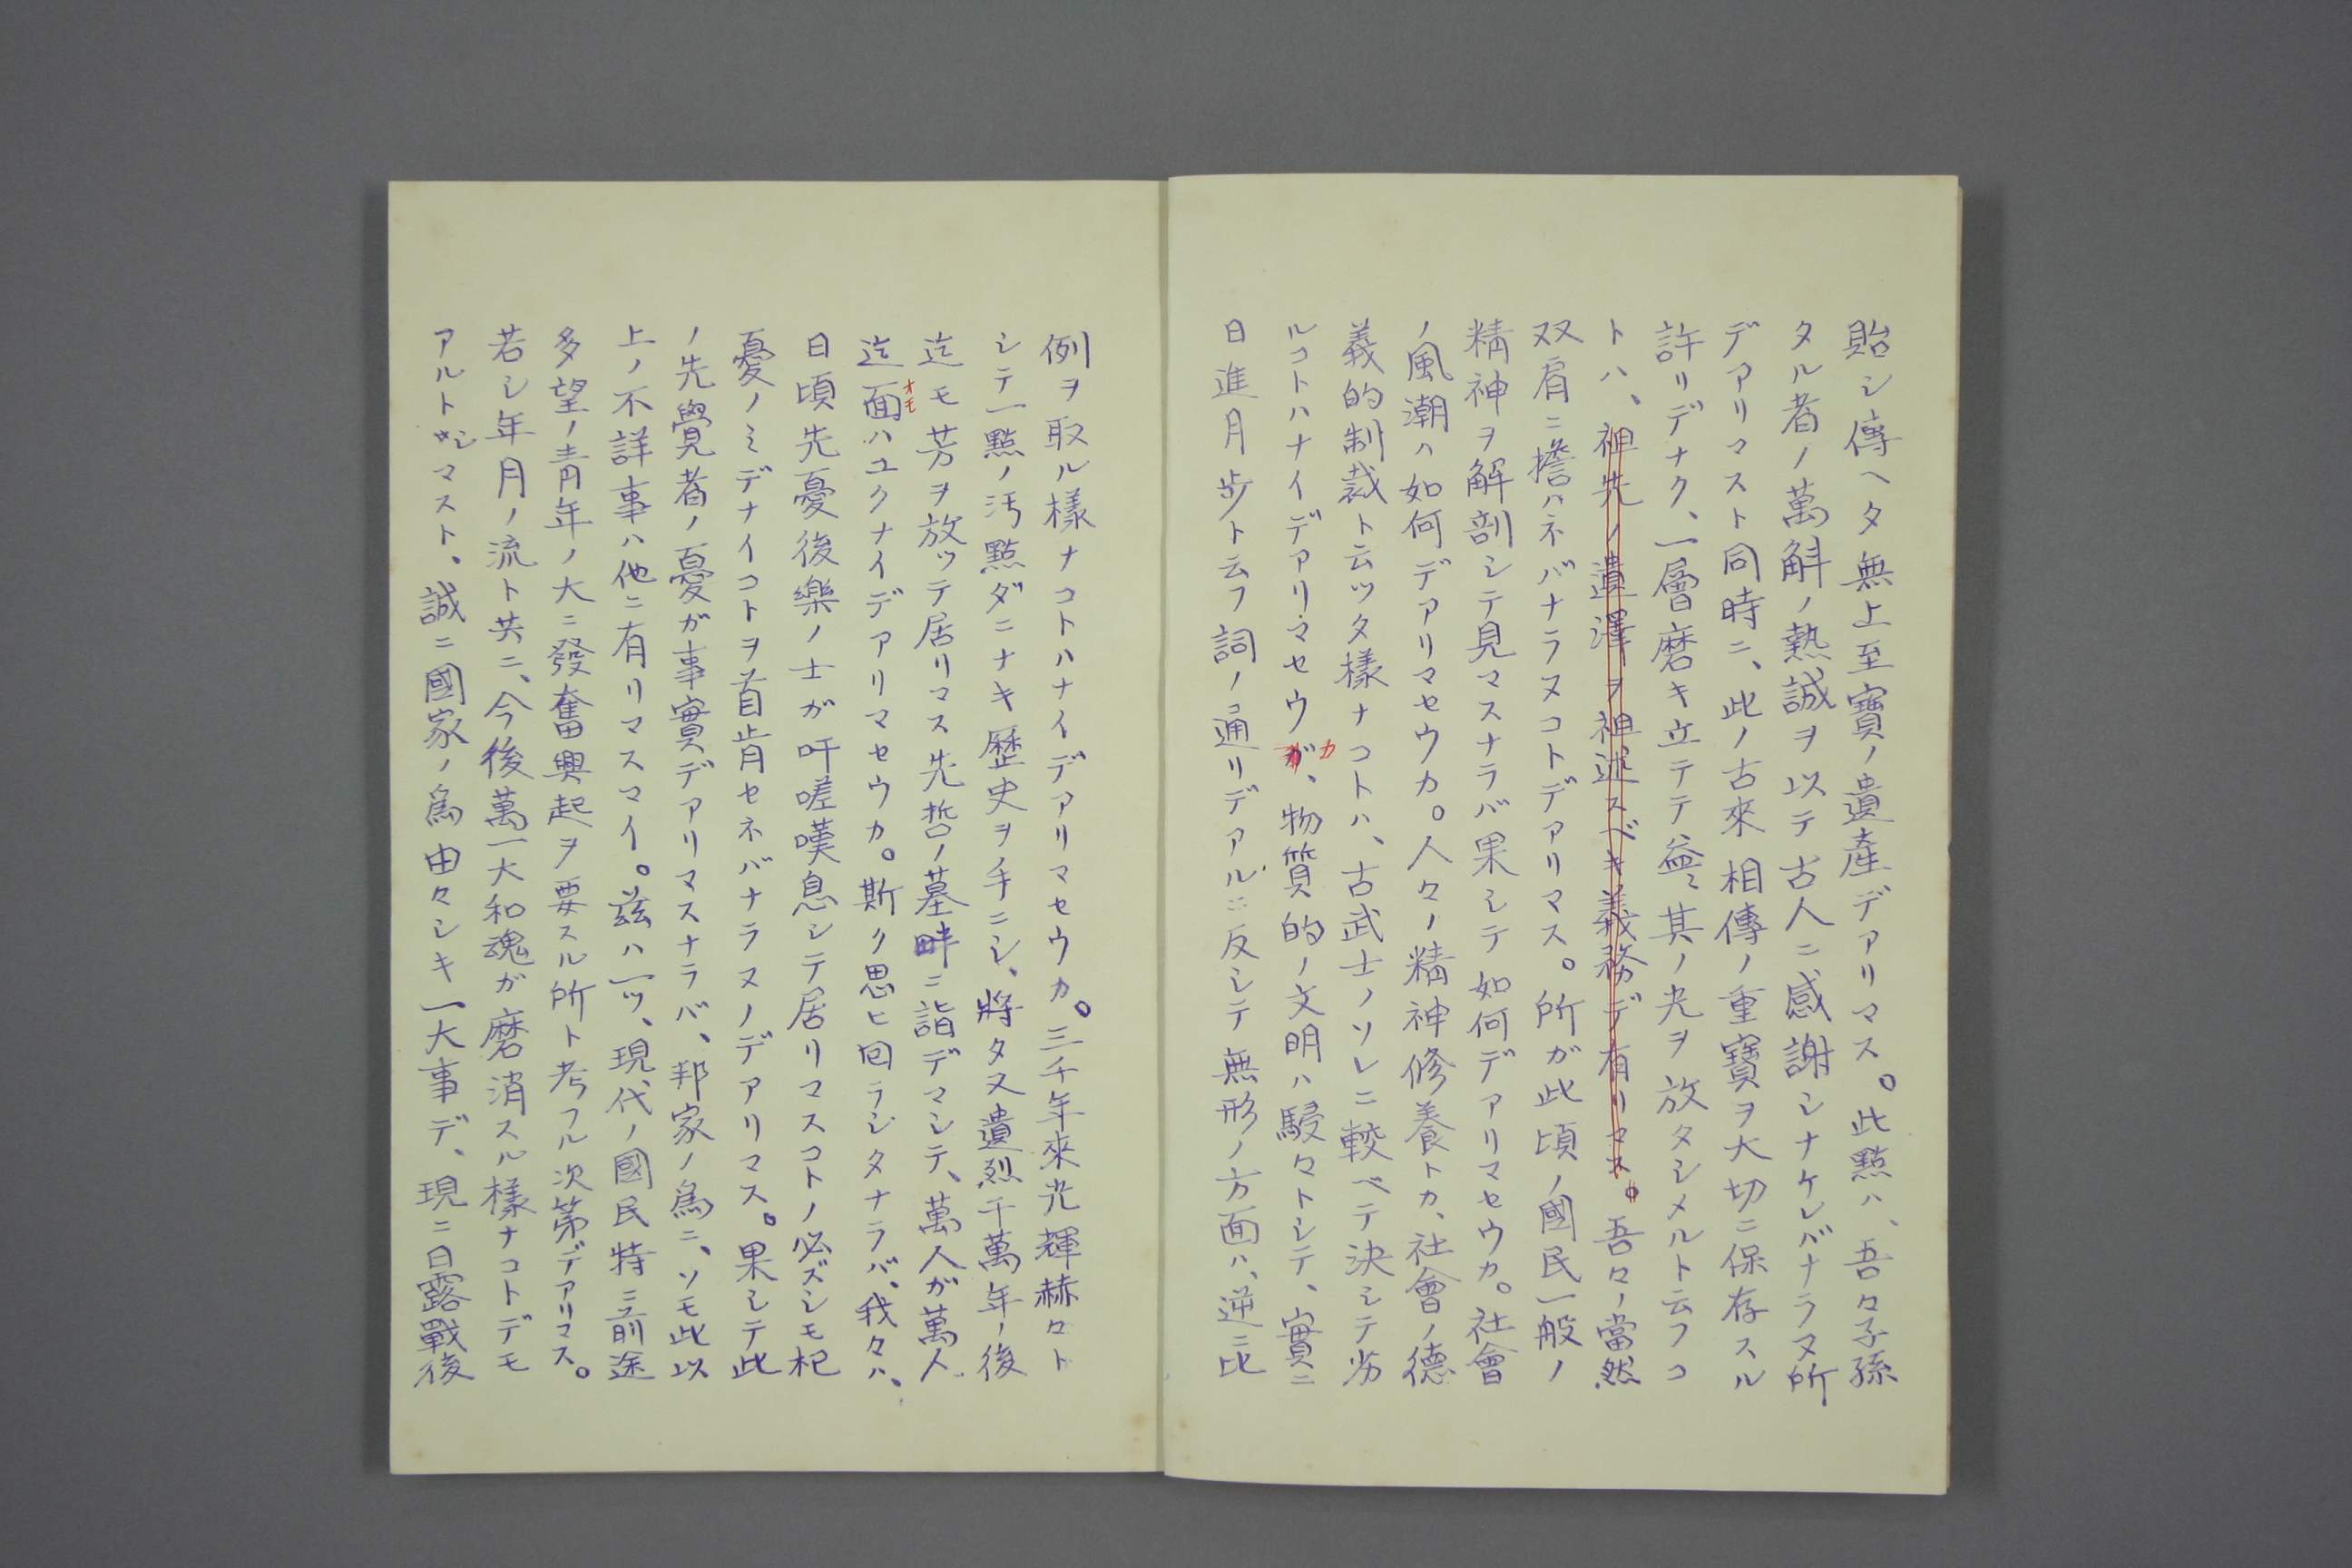 貽シ傳ヘタ無上至寶ノ遺産デアリマス。此點ハ、吾々子孫
タル者ノ萬斛ノ熱誠ヲ以テ古人ニ感謝シナケレバナラヌ所
デアリマスト同時ニ、此ノ古來相傳ノ重寶ヲ大切ニ保存スル
許リデナク、一層磨キ立テテ益〻其ノ光ヲ放タシメルト云フコ
トハ、祖先ノ遺澤ヲ祖述スベキ義務デ有リマス。吾々ノ當然
双肩ニ擔ハネバナラヌコトデアリマス。所が此頃ノ國民一般ノ
精神ヲ解剖シテ見マスナラバ果シテ如何デアリマセウカ。社會
ノ風潮ハ如何デアリマセウカ。人々ノ精神修養トカ、社會ノ德
義的制裁ト云ッタ樣ナコトハ、古武士ノソレニ較ベテ決シテ劣
ルコトハナイデアリマセウが、カ物質的ノ文明ハ駸々トシテ、實ニ
日進月歩ト云フ詞ノ通リデアルニ反シテ無形ノ方面ハ、逆ニ比
例ヲ取ル樣ナコトハナイデアリマセウカ。三千年來光輝赫々ト
シテ一點ノ汚點ダニナキ歷史ヲ手ニシ、將タ又遺烈千萬年ノ後
迄モ芳ヲ放ッテ居リマス先哲ノ墓畔ニ詣デマシテ、萬人が萬人
迄面オモハユクナイデアリマセウカ。斯ク思ヒ回ラシタナラバ、我々ハ、
日頃先憂後樂ノ士が吁嗟嘆息シテ居リマスコトノ必ズシモ杞
憂ノミデナイコトヲ首肯セネバナラヌノデアリマス。果シテ此
ノ先覺者ノ憂が事實デアリマスナラバ、邦家ノ爲ニ、ソモ此以
上ノ不詳事ハ他ニ有リマスマイ。茲ハ一ッ、現代ノ國民特ニ前途
多望ノ青年ノ大ニ發奮興起ヲ要スル所ト考フル次第デアリマス。
若シ年月ノ流ト共ニ、今後萬一大和魂が磨消スル樣ナコトデモ
アルトシマスト、誠ニ國家ノ爲由々シキ一大事デ、現ニ日露戰後